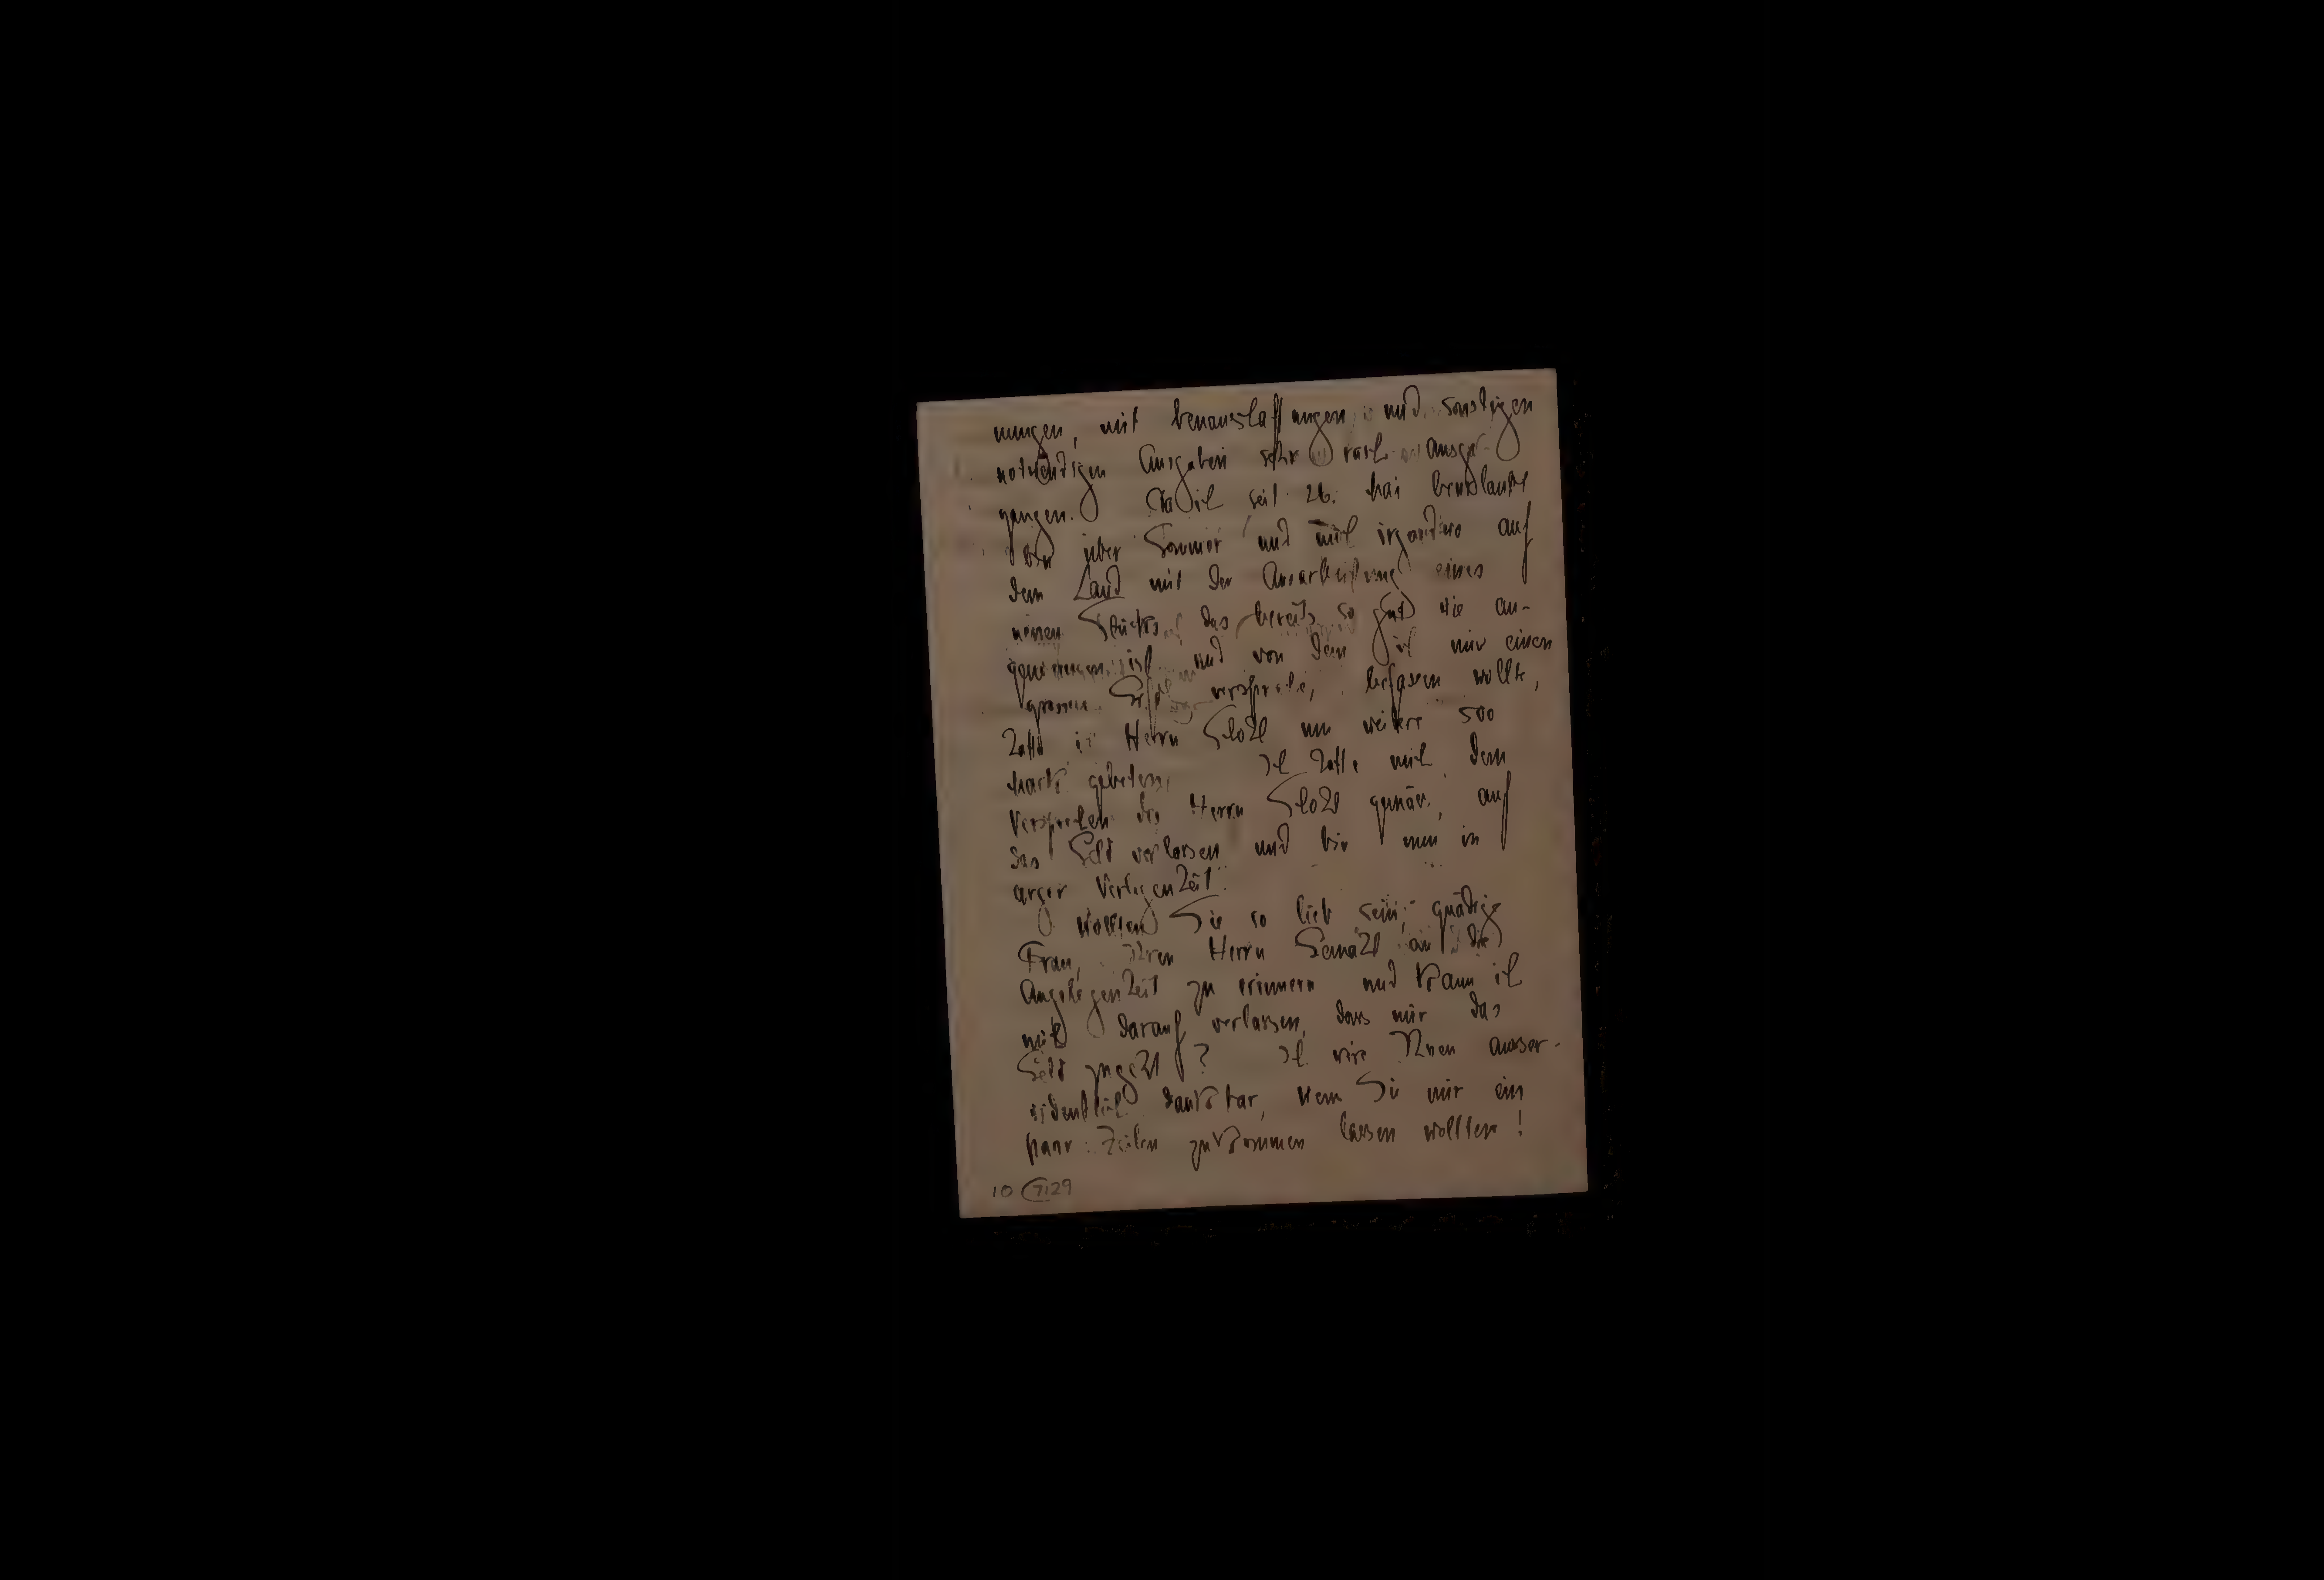 nungen, mit Neuanschaffungen und sonstigen
notwendigen Ausgaben sehr rasch ausge-
gangen. Da ich seit 26. Mai beurlaubt
bin über Sommer und mich irgendwo auf
dem Land mit der Ausarbeitung eines
neuen Stücks, das bereits so gut wie an-
genommen ist und von dem ich mir einen
grossen Erfolg verspreche, befassen wollte,
hatte ich Herrn um weitere 500
Mark gebeten. Ich hatte mich dem
Versprechen des Herrn gemäss, auf
das Geld verlassen und bin nun in
arger Verlegenheit.
Wollten Sie so lieb sein, gnädige
Frau, Ihren Herrn Gemahl an die
Angelegenheit zu erinnern und kann ich
mich darauf verlassen, dass mir das
Geld zugeht? Ich wäre Ihnen ausser-
ordentlich dankbar, wenn Sie mir ein
paar Zeilen zukommen lassen wollten!
10 7129